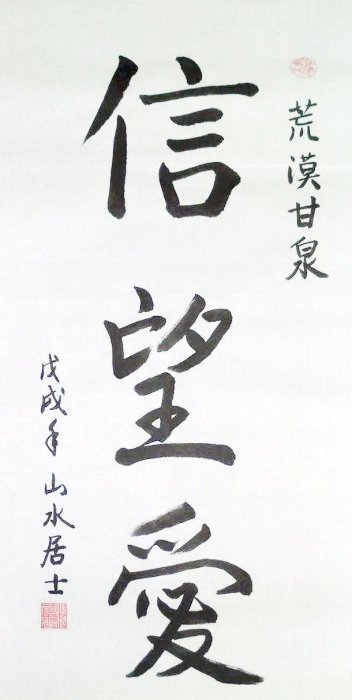 荒漠甘泉
信望愛
戊戌年 山水居士